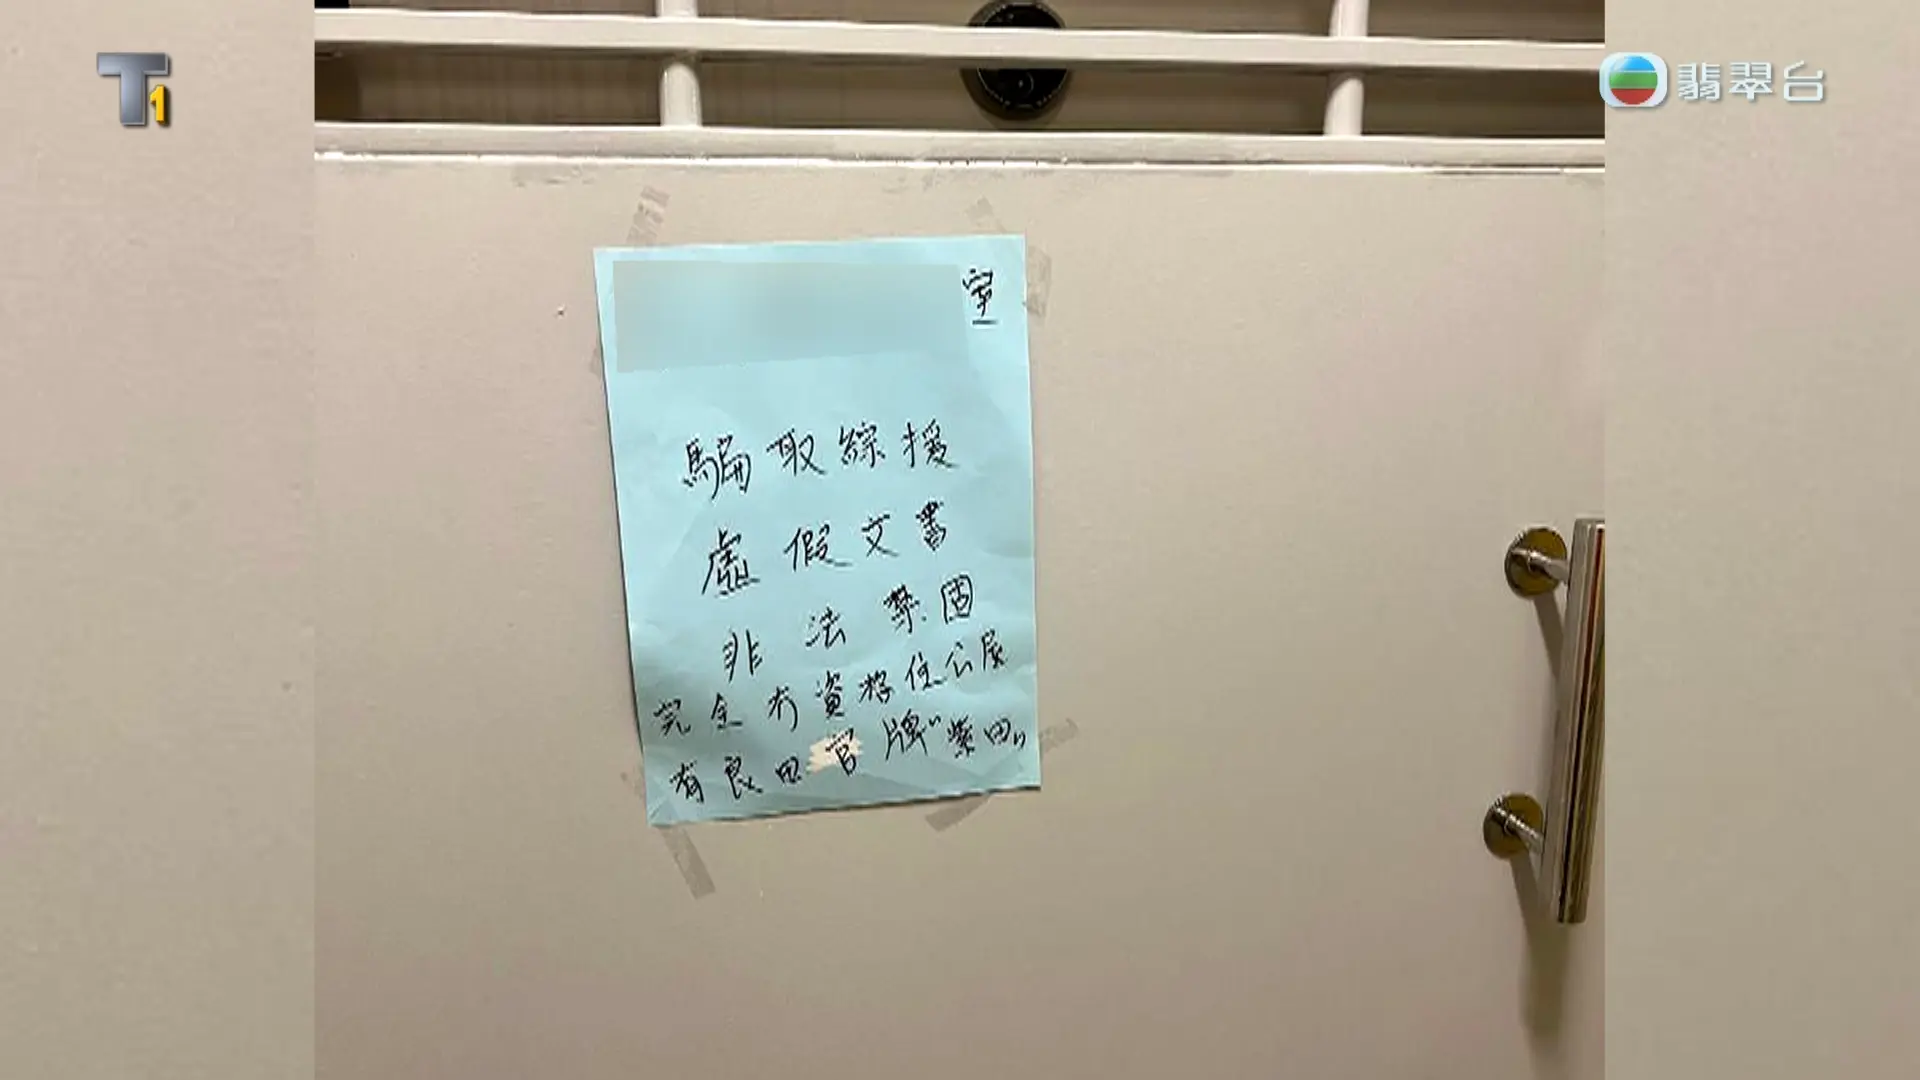 T1
翡翠台
室
騙取綜援
虛假文書
非法禁固
完全冇資格住公屋
有良田官牌"紫田"